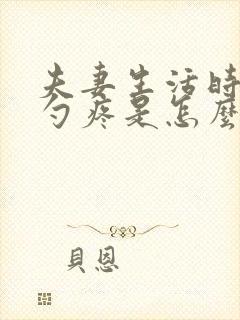 夫妻生活時
勺疼是怎麼
貝恩